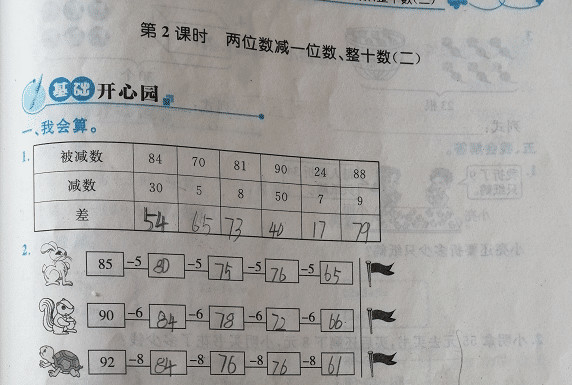 第2课时 两位数减一位数、整十数(二)
基础开心园
一、我会算。
1. 被减数 84 70 81 90 24 88
减数 30 5 8 50 7 9
差 54 65 73 40 17 79
2. 85 -5 80 -5 75 -5 76 -5 65
90 -6 84 -6 78 -6 72 -6 66
92 -8 84 -8 76 -8 76 -8 61